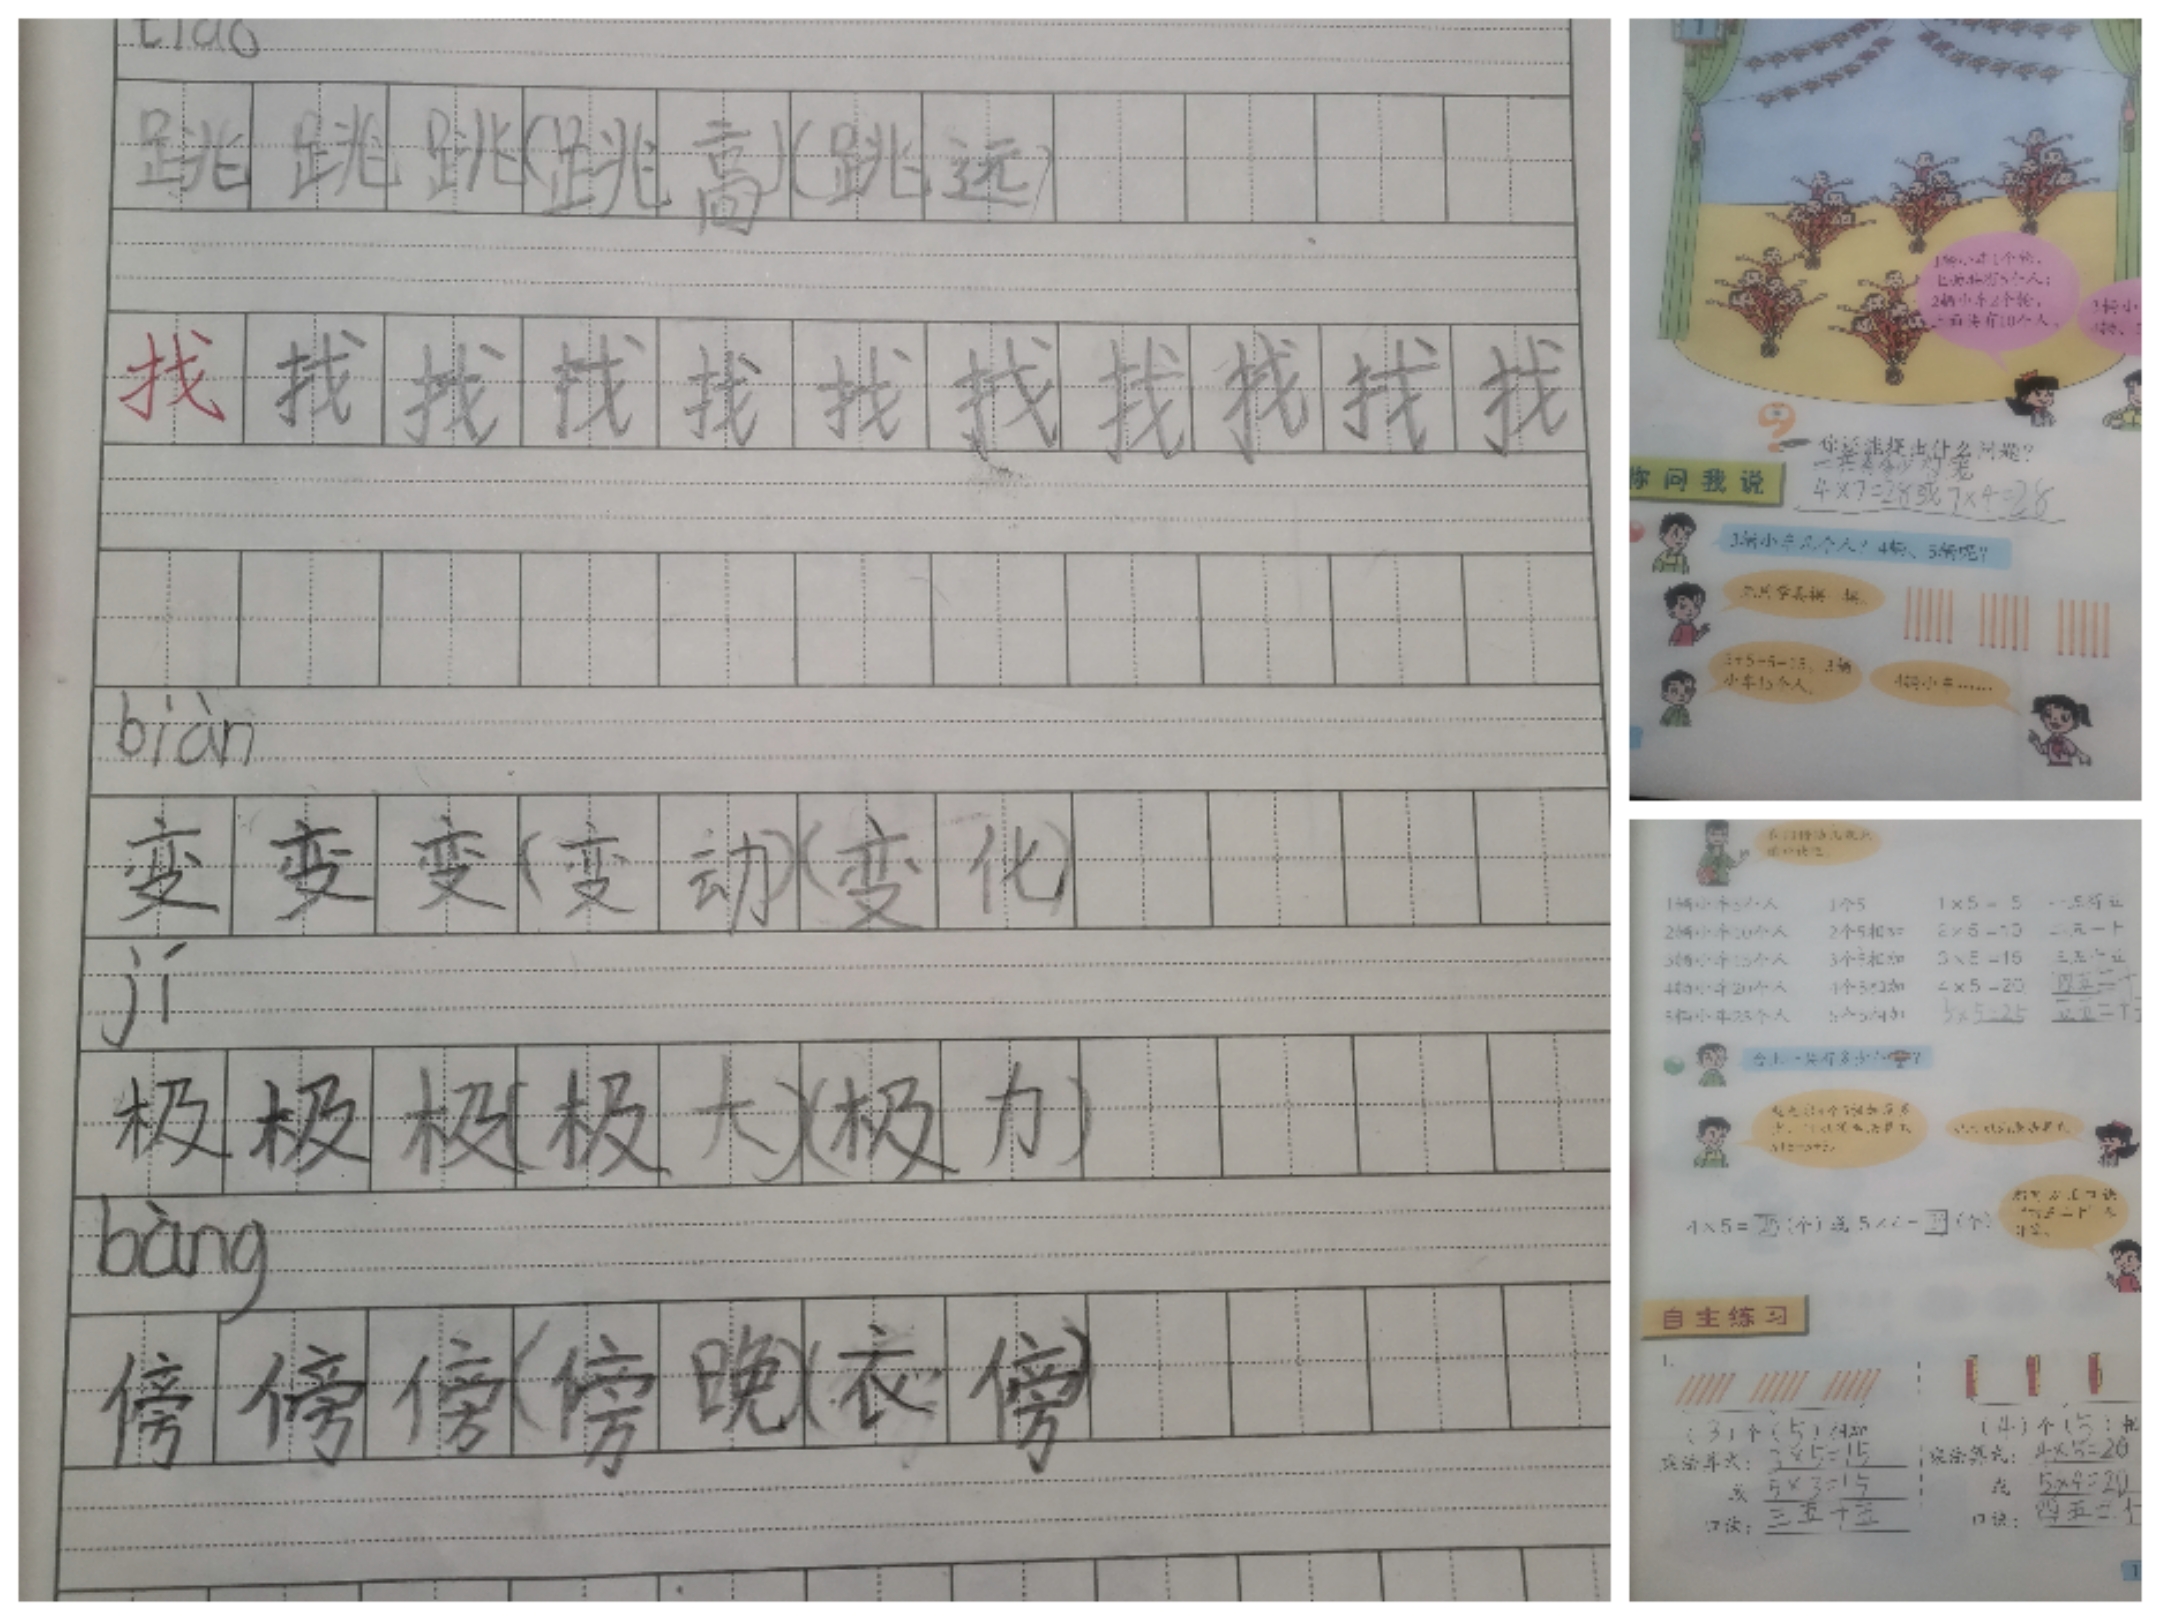 tiào
跳跳跳(跳高)(跳远)
找找找找找找找找找找找
biàn
变变变(变动)(变化)
jí
极极极(极大)(极力)
bàng
傍傍傍(傍晚)(衣傍)
1辆小车1个轮,
上面共有5个人;
2辆小车2个轮,
上面共有10个人。
你还能提出什么问题?
你问我说
4×7=28或7×4=28
3辆小车几个人?4辆、5辆呢?
5+5+5=15,3辆
小车15个人。
4辆小车……
1辆小车5个人 1个5 1×5=5 一五得五
2辆小车10个人 2个5相加 2×5=10 二五一十
3辆小车15个人 3个5相加 3×5=15 三五十五
4辆小车20个人 4个5相加 4×5=20 四五二十
5辆小车25个人 5个5相加 5×5=25 五五二十
台上一共有多少个?
4×5=(个)或5×4=(个)
自主练习
1.
(3)个(5)相加 (4)个(5)相
乘法算式:3×5=15 乘法算式:4×5=20
或 5×3=15 或 5×4=20
口诀:三五十五 口诀:四五二十